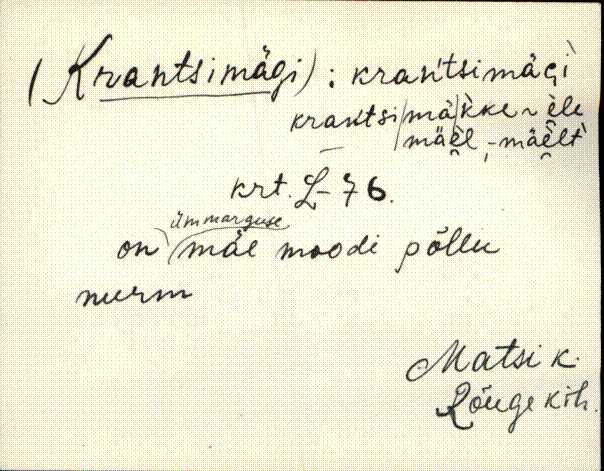 (Krantsimägi) : krańtsimägì
krańtsi/mä/kke ~ èle
mäel, -mäelt
krt. L-76.
ümmarguse
on mäe moodi põllu
nurm
Matsi k.
Rõuge kih.